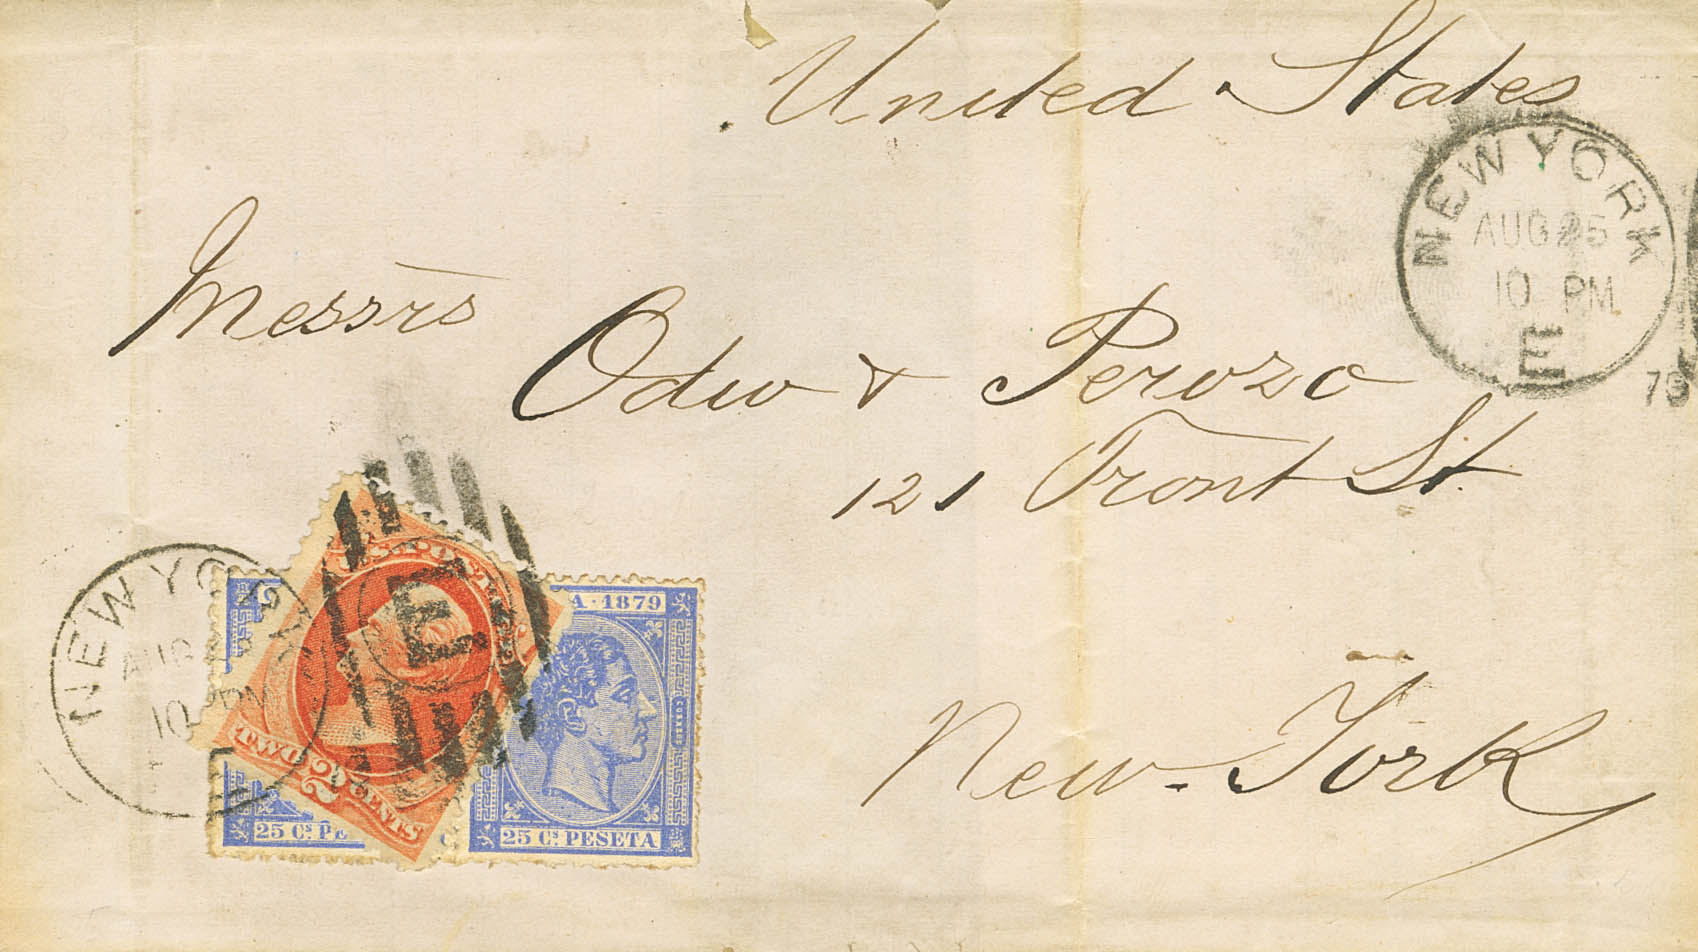 United States
NEW YORK
AUG 25
10 PM
E
79
Messrs
Odio & Perozo
121 Front St.
New-York
NEW YORK
AUG
10 PM
U.S. POSTAGE
E
TWO 2 CENTS
A · 1879
25 Cs. PE
25 Cs. PESETA